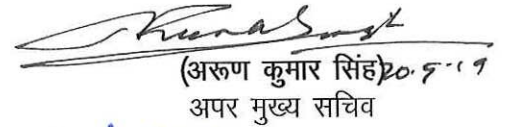 (अरूण कुमार सिंह) 20.5.19
अपर मुख्य सचिव